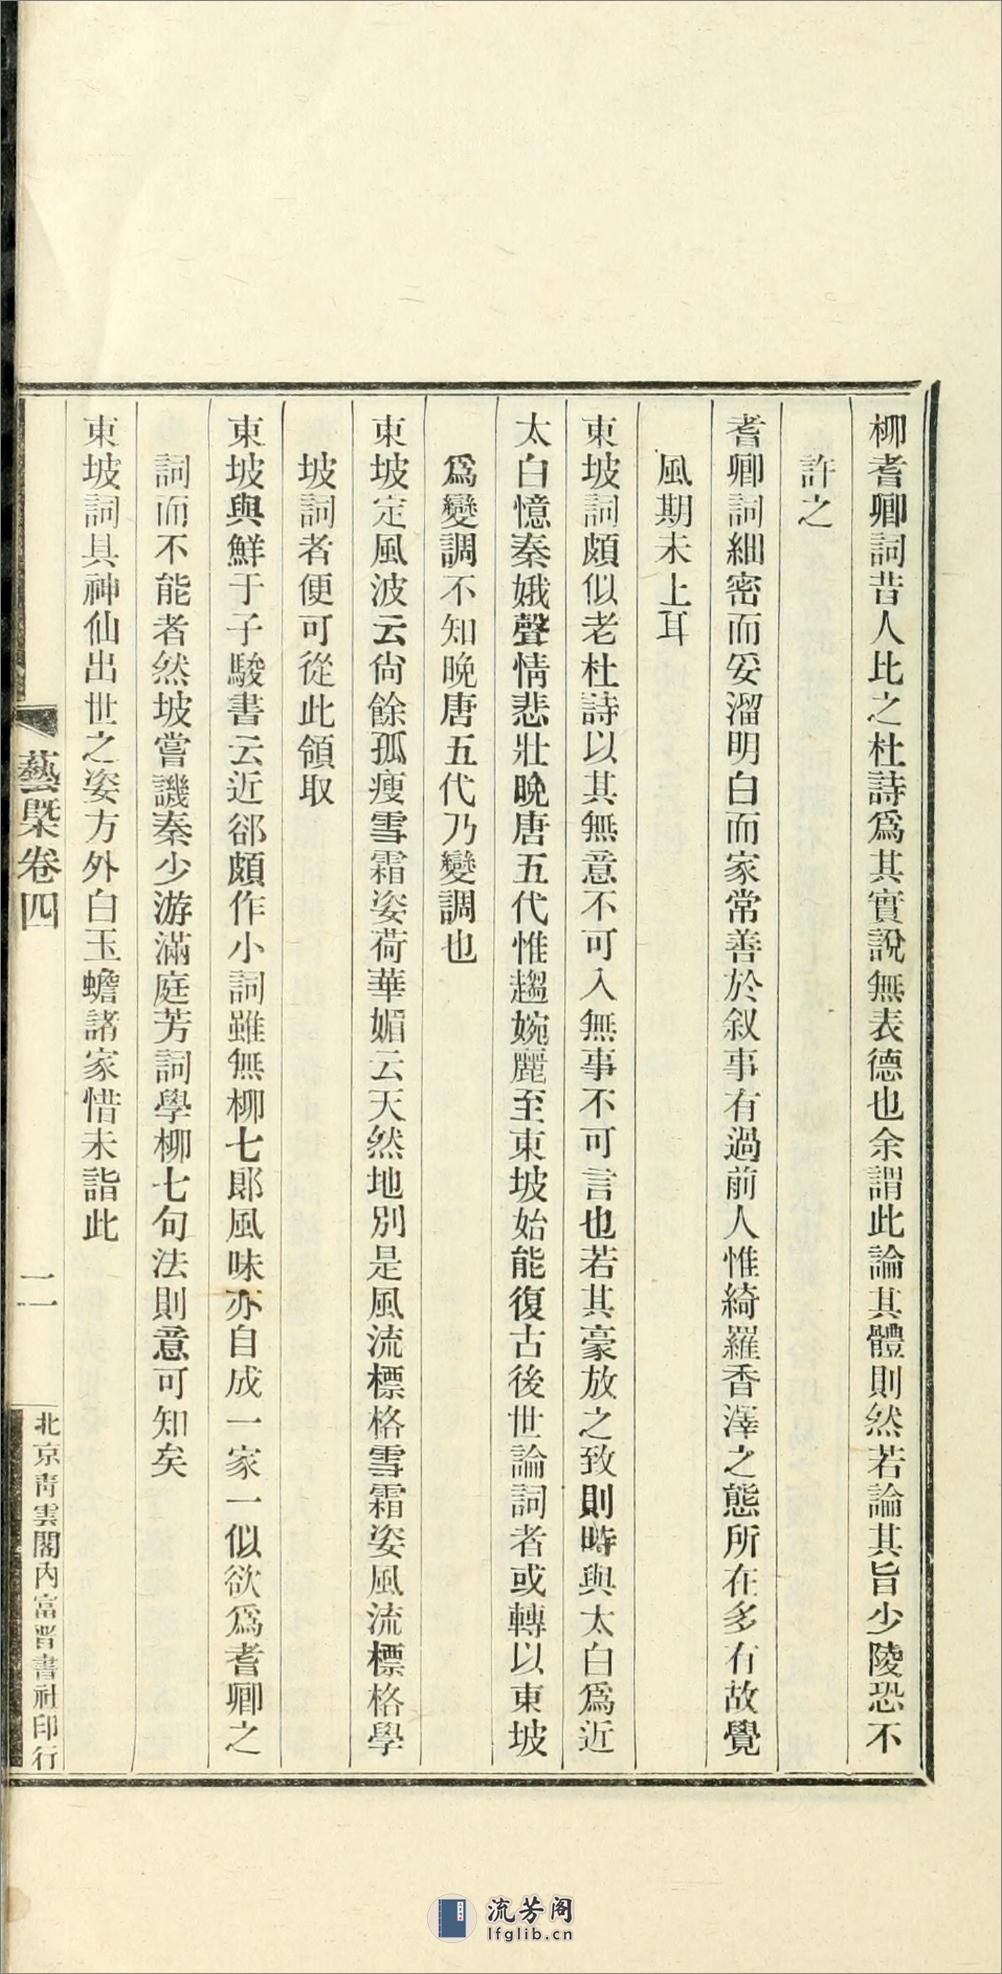 柳耆卿詞昔人比之杜詩爲其實說無表德也余謂此論其體則然若論其旨少陵恐不
許之
耆卿詞細密而妥溜明白而家常善於叙事有過前人惟綺羅香澤之態所在多有故覺
風期未上耳
東坡詞頗似老杜詩以其無意不可入無事不可言也若其豪放之致則時與太白爲近
太白憶秦娥聲情悲壯晚唐五代惟趨婉麗至東坡始能復古後世論詞者或轉以東坡
爲變調不知晚唐五代乃變調也
東坡定風波云尙餘孤瘦雪霜姿荷華媚云天然地別是風流標格雪霜姿風流標格學
坡詞者便可從此領取
東坡與鮮于子駿書云近郤頗作小詞雖無柳七郎風味亦自成一家一似欲爲耆卿之
詞而不能者然坡嘗譏秦少游滿庭芳詞學柳七句法則意可知矣
東坡詞具神仙出世之姿方外白玉蟾諸家惜未詣此
藝槩卷四
二
北京靑雲閣內富晋書社印行
流芳阁
lfglib.cn